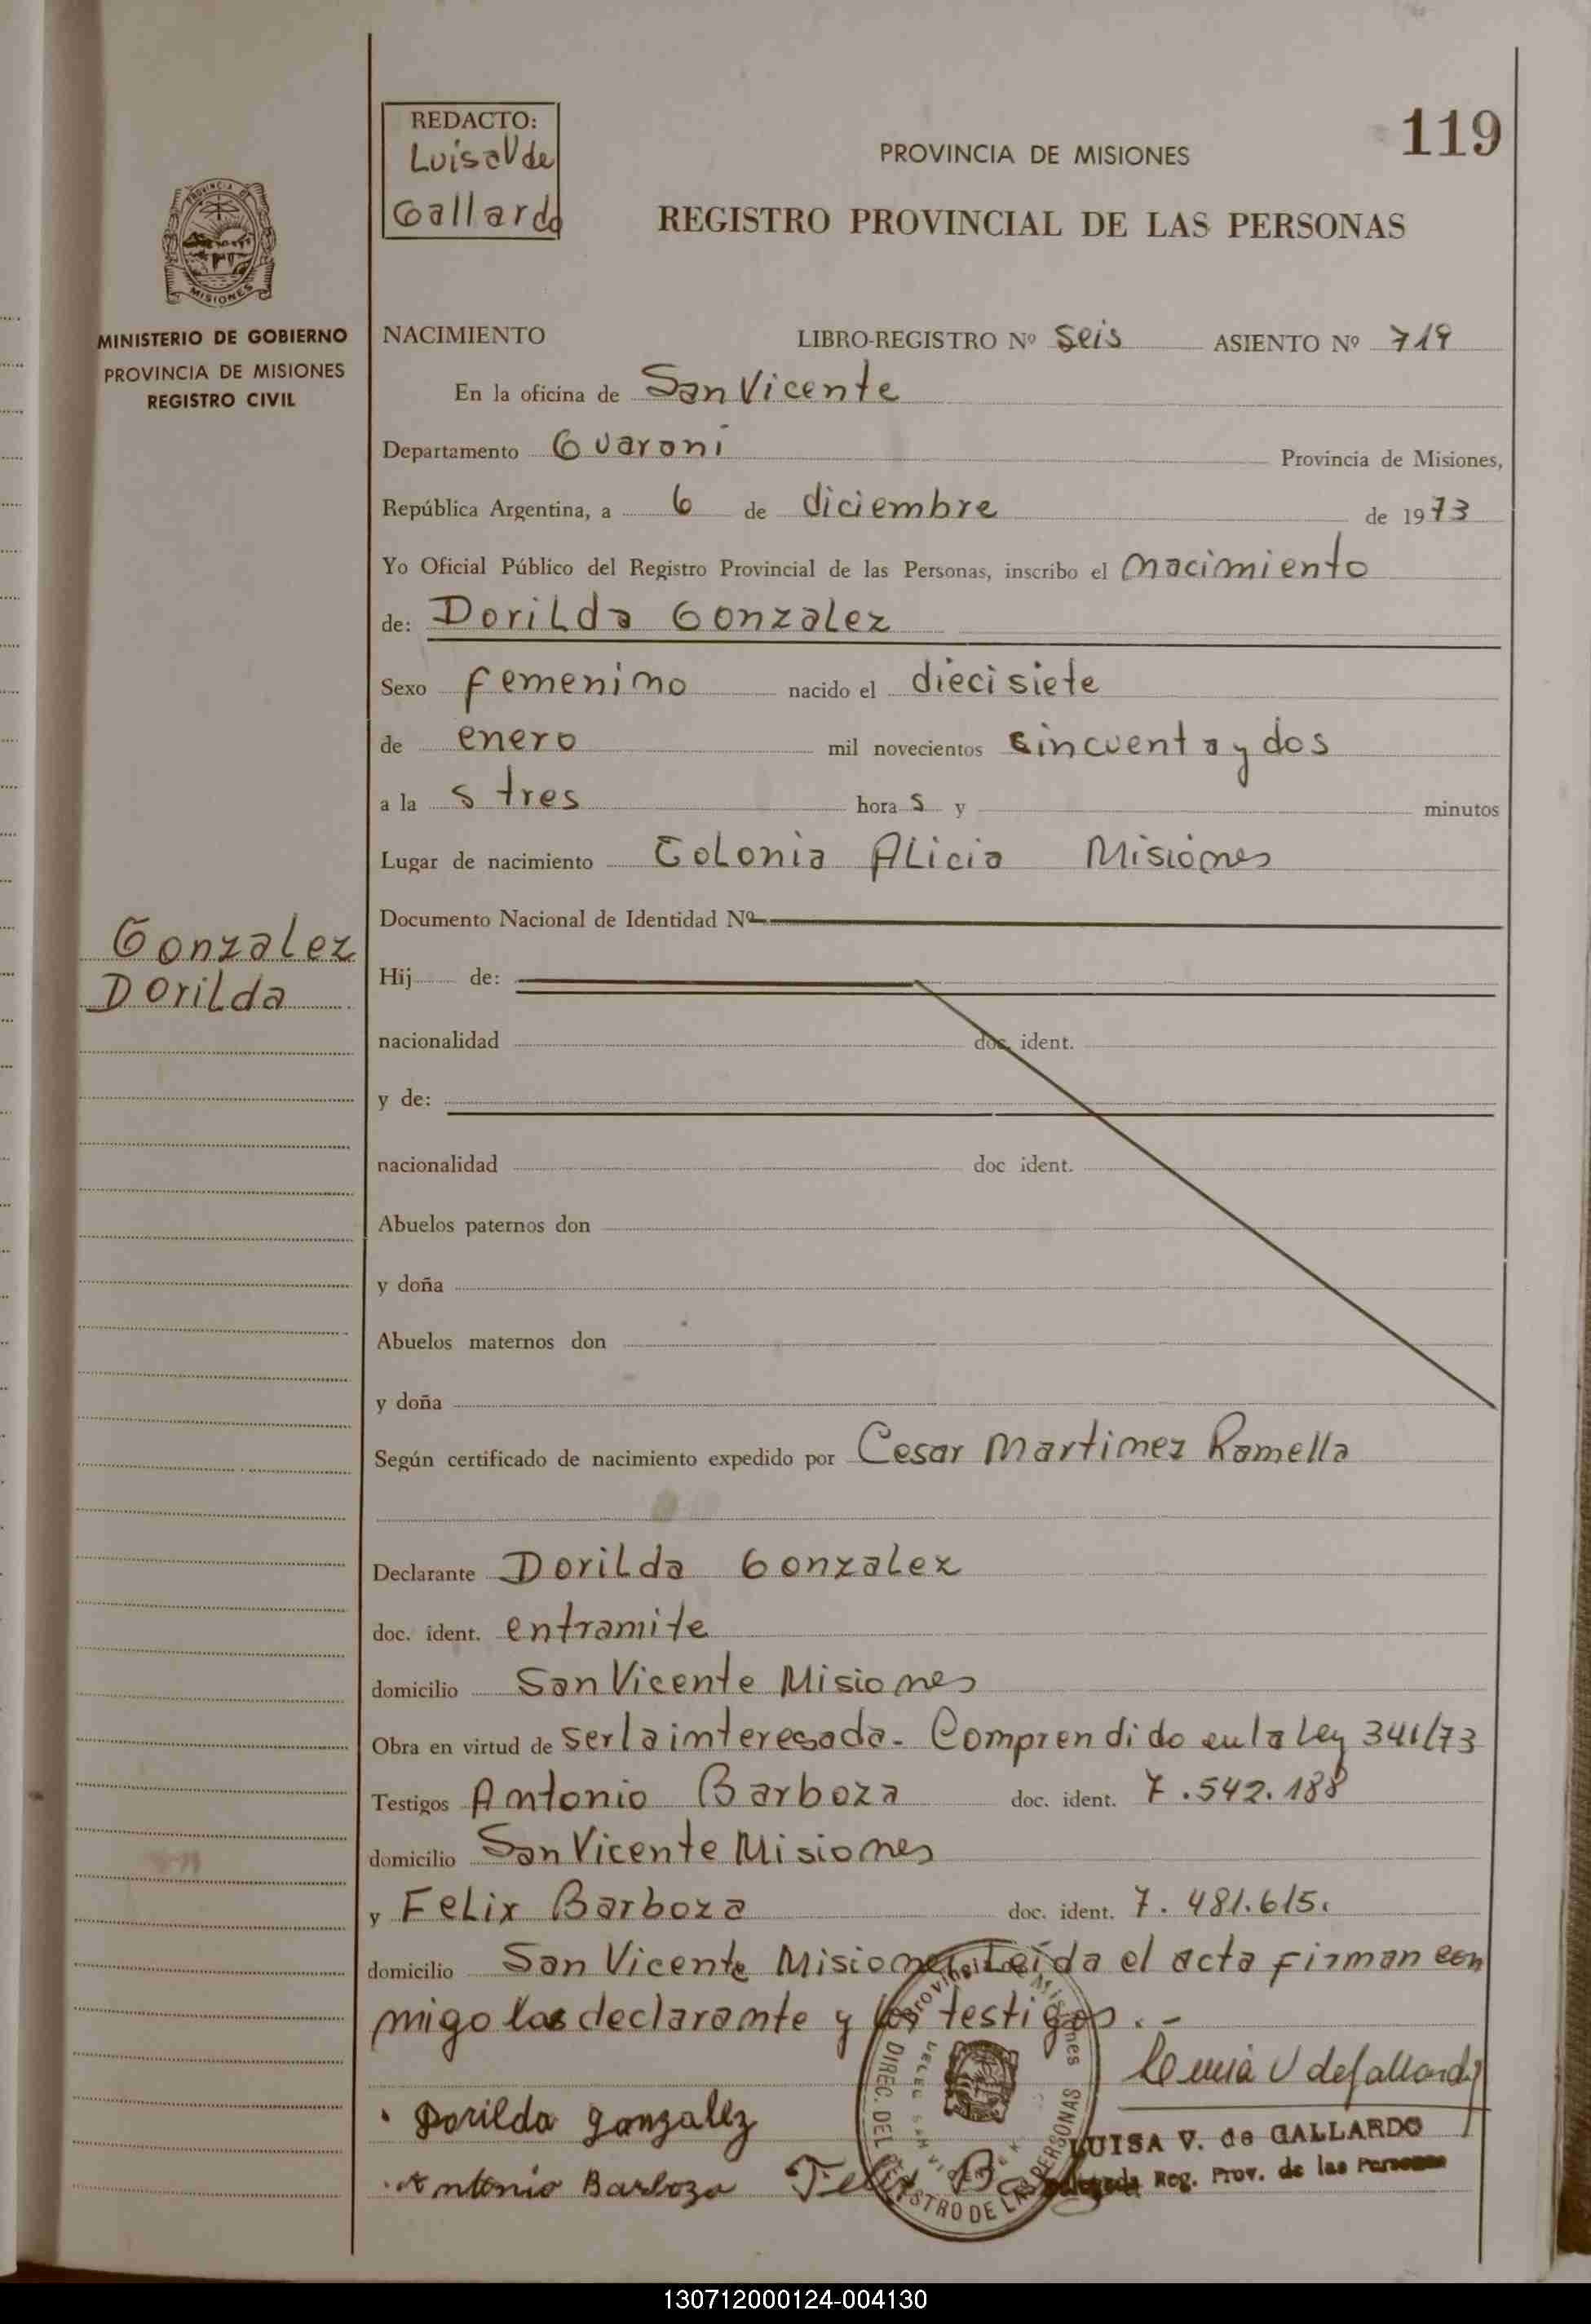 119
REDACTO:
Luisa V de
Gallardo
PROVINCIA DE MISIONES
REGISTRO PROVINCIAL DE LAS PERSONAS
PROVINCIA DE
MISIONES
MINISTERIO DE GOBIERNO
PROVINCIA DE MISIONES
REGISTRO CIVIL
NACIMIENTO LIBRO-REGISTRO Nº Seis ASIENTO Nº 719
En la oficina de San Vicente
Departamento Guaroni Provincia de Misiones,
República Argentina, a 6 de diciembre de 1973
Yo Oficial Público del Registro Provincial de las Personas, inscribo el nacimiento
de: Dorilda Gonzalez
Sexo femenino nacido el diecisiete
de enero mil novecientos cincuenta y dos
a la s tres hora s y minutos
Lugar de nacimiento Colonia Alicia Misiones
Documento Nacional de Identidad Nº
Gonzalez
Dorilda
Hij de:
nacionalidad doc. ident.
y de:
nacionalidad doc ident.
Abuelos paternos don
y doña
Abuelos maternos don
y doña
Según certificado de nacimiento expedido por Cesar Martinez Ramella
Declarante Dorilda Gonzalez
doc. ident. entramite
domicilio San Vicente Misiones
Obra en virtud de ser la interesada- Comprendido en la Ley 341/73
Testigos Antonio Barboza doc. ident. 7.542.188
domicilio San Vicente Misiones
y Felix Barboza doc. ident. 7.481.615.
domicilio San Vicente Misiones Leída el acta firman con
migo las declarante y los testigos.-
Dorilda gonzalez
Antonio Barboza Felix
LUISA V. de GALLARDO
Delegada Reg. Prov. de las Personas
DIREC. DEL REGISTRO DE LAS PERSONAS
Provincia de Misiones
130712000124-004130